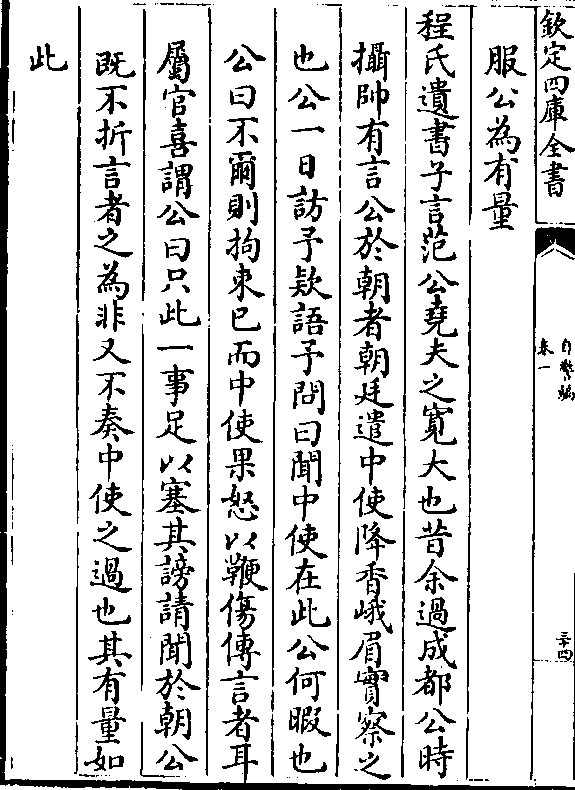 欽定四庫全書
自警編
卷一
三十四
服公為有量
程氏遺書子言范公堯夫之寬大也昔余過成都公時
攝帥有言公於朝者朝廷遣中使降香峨眉實察之
也公一日訪予欵語子問曰聞中使在此公何暇也
公曰不爾則拘束已而中使果怒以鞭傷傳言者耳
屬官喜謂公曰只此一事足以塞其謗請聞於朝公
既不折言者之為非又不奏中使之過也其有量如
此